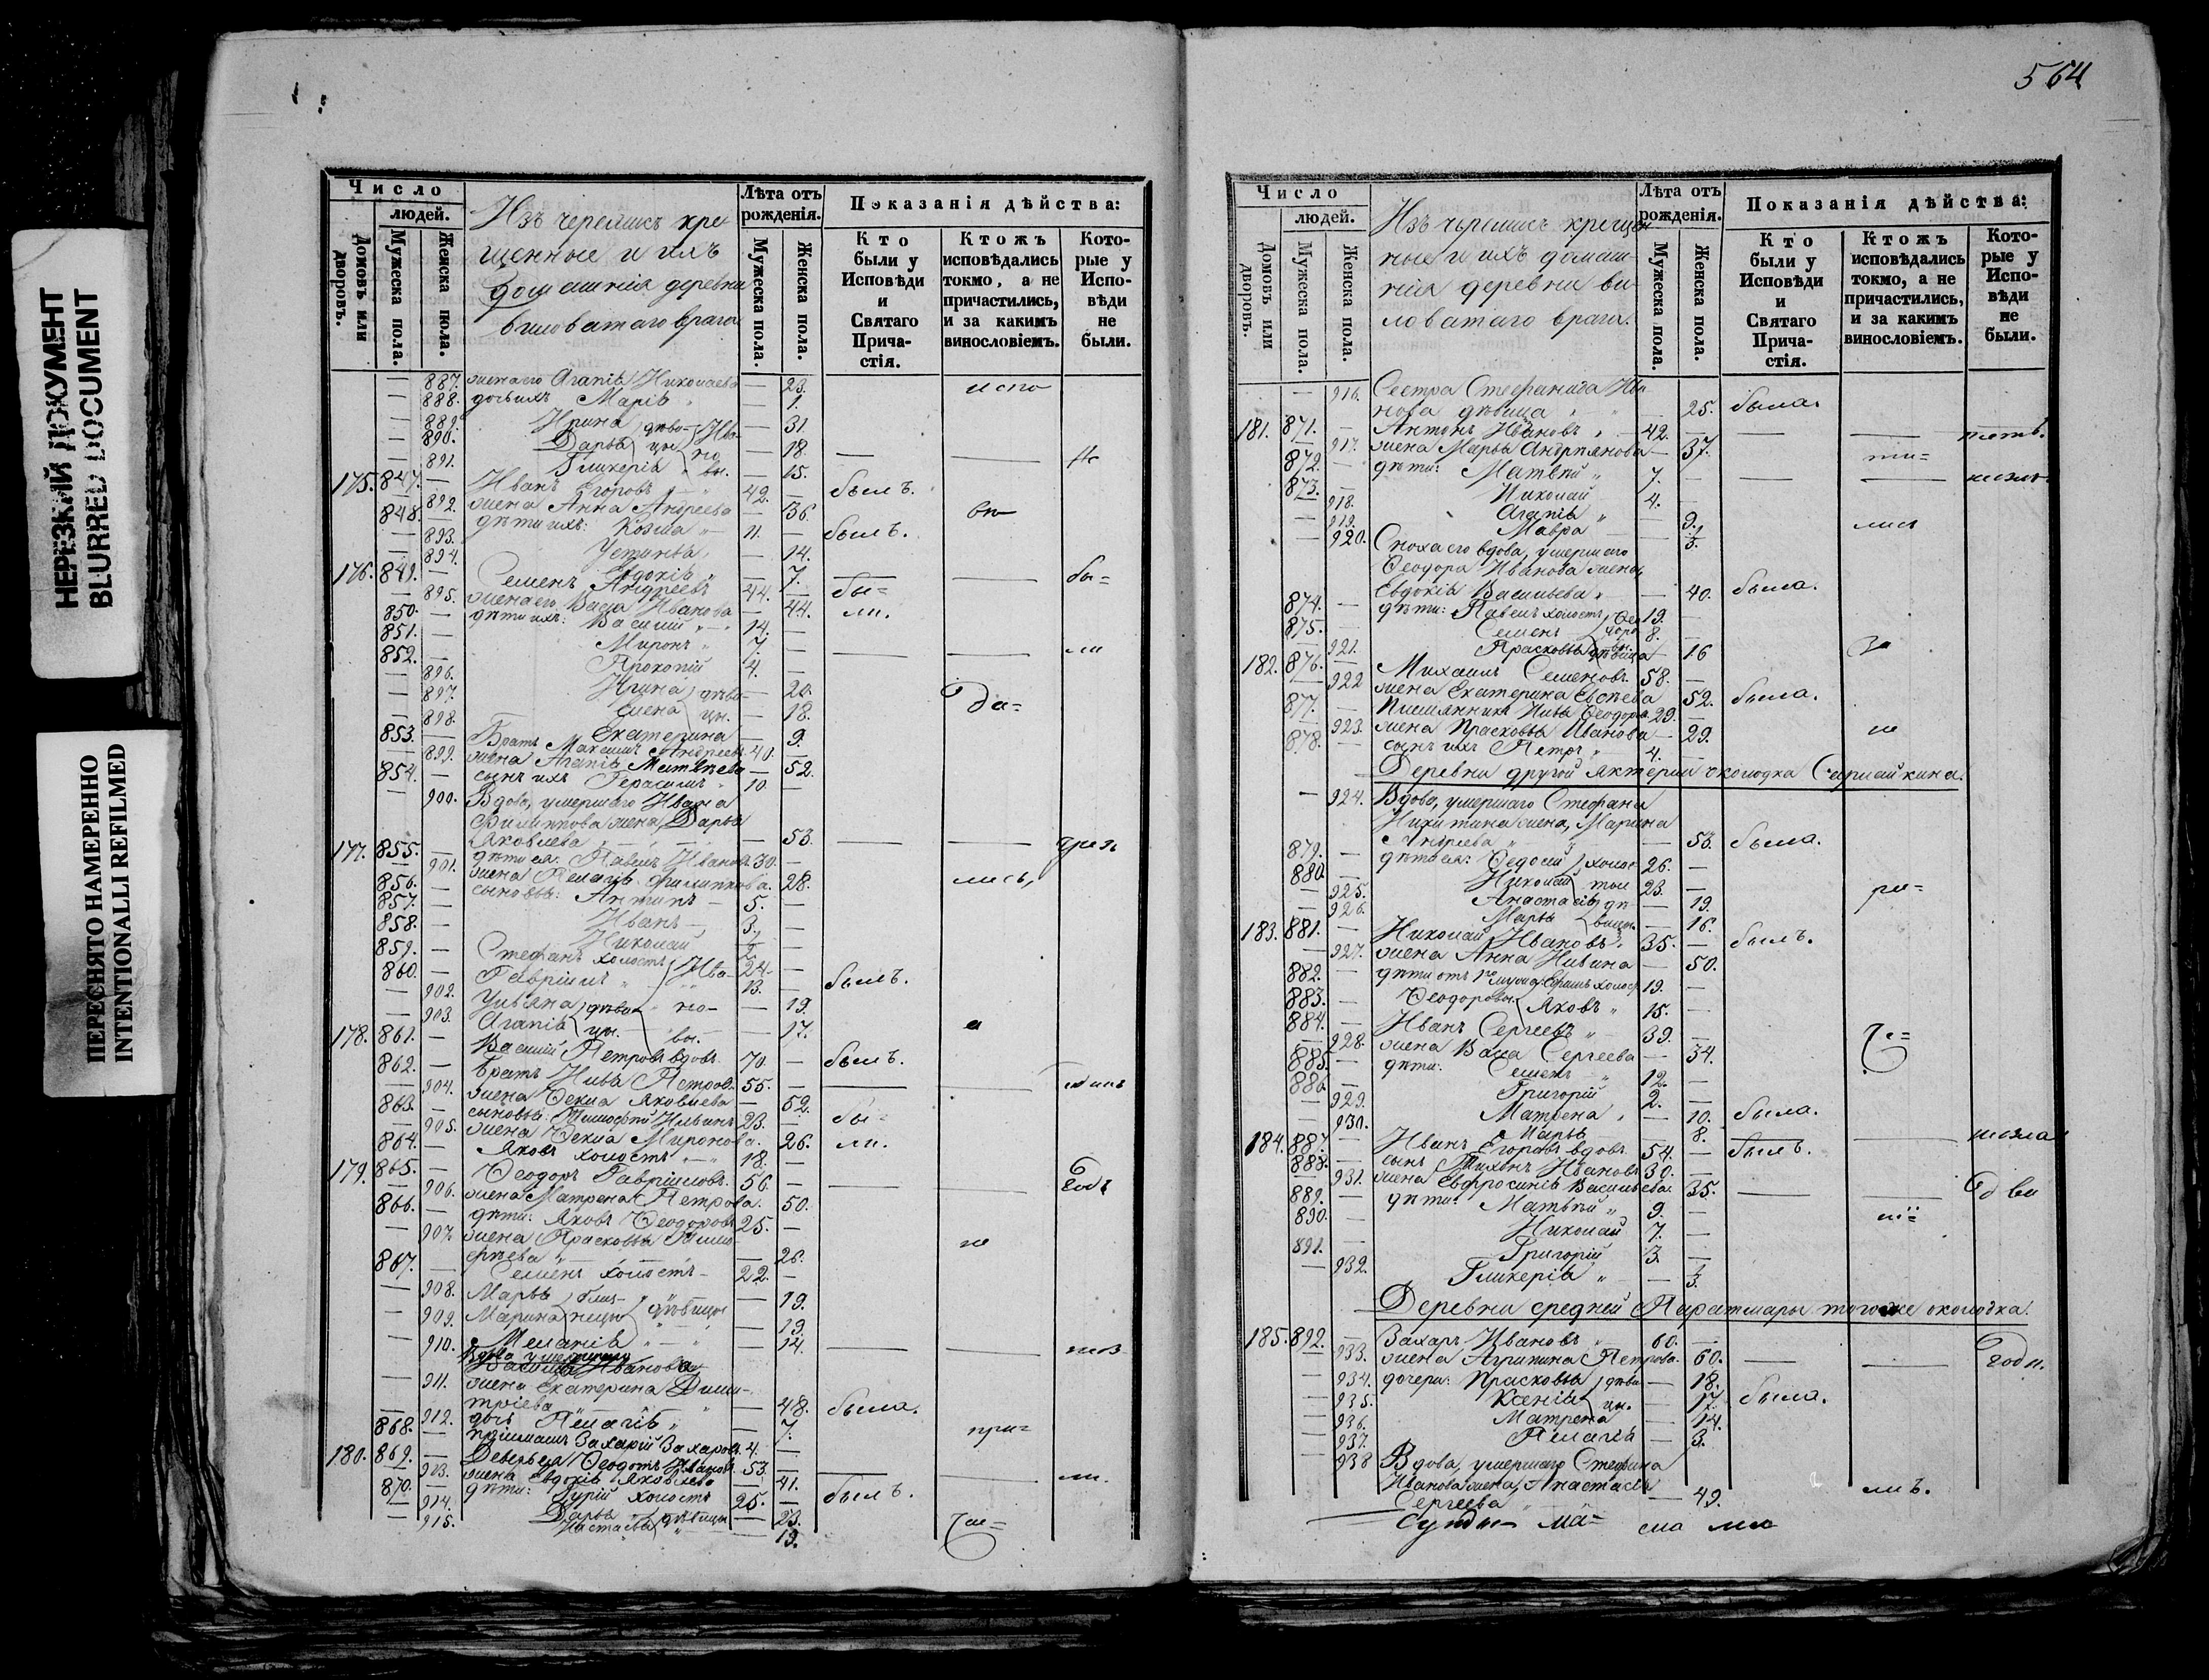 НЕРЕЗКИЙ ДОКУМЕНТ
BLURRED DOCUMENT
ПЕРЕСНЯТО НАМЕРЕННО
INTENTIONALLI REFILMED
Число
людей.
Домовъ или дворовъ.
Мужеска пола.
Женска пола.
Изъ черемисъ кре
щенные и ихъ
домашнiя деревни
виловатаго врага
Лѣта отъ рожденiя.
Мужеска пола.
Женска пола.
Показанiя дѣйства:
Кто были у Исповѣди и Святаго Прича-стiя.
Ктожъ исповѣдались токмо, а не причастились, и за какимъ винословiемъ.
Кото-рые у Испо-вѣди не были.
— 887. жена его Агапiя Николаева — 23. испо
— 888. дочь ихъ Марiя — 1.
— 889. Ирина — 31.
— 890. Дарья — 18.
— 891. Гликерiя — 15.
175. 847. — Иванъ Егоровъ 42. — былъ.
— 892. жена Анна Андреева — 36.
848. — дѣти ихъ: Козма 11. — былъ.
— 893. Устинья — 14.
— 894. Евдокiя — 7.
176. 849. — Семенъ Андреевъ 44. — бы=
— 895. жена его Васса Иванова — 44. ли.
850. — дѣти ихъ: Василiй 14. —
851. — Миронъ 7. —
852. — Прокопiй 4. —
— 896. Ирина — 20.
— 897. Елена — 18.
— 898. Екатерина — 9.
853. — Братъ Максимъ Андреевъ 40. —
— 899. жена Агапiя Матвѣева — 52.
854. — сынъ ихъ Герасимъ 10. —
— 900. Вдова, умершаго Ивана
Филиппова жена, Дарья
Яковлева — 53.
177. 855. — дѣти ея: Павелъ Ивановъ 30. —
— 901. жена Пелагiя Филиппова. — 28. лись,
856. — сыновья: Антипъ 5. —
857. — Иванъ 3. —
858. — Николай
859. — Стефанъ холостъ 24 —
860. — Гаврiилъ 13. — былъ.
— 902. Ульяна — 19.
— 903. Агапiя — 17.
178. 861. — Василiй Петровъ вдовъ 70. — былъ.
862. — братъ Илья Петровъ 55. —
— 904. жена Ѳекла Яковлева — 52.
863. — сыновья: Тимофей Ильинъ 23. — бы-
— 905. жена Ѳекла Миронова. — 26. ли.
864. — Яковъ холостъ 18. —
179. 865. — Ѳеодоръ Гаврiиловъ 56. —
— 906. жена Матрена Петрова. 50.
866. — дѣти: Яковъ Ѳеодоровъ 25. —
— 907. жена Прасковья Тимо
фѣева — 26. не
867. — Семенъ холостъ 22. —
— 908. Марья — 19.
— 909. Марина — 19.
— 910. Меланiя — 14.
Вдова умершаго
— 911. жена Екатерина Дими-
трiева — 48. была.
— 912. дочь Пелагiя — 7.
868. — прiимышъ Захарiй Захаровъ 4. — при=
180. 869. — Деверь ея Ѳеодотъ Ивановъ 53. —
— 913. жена Евдокiя Яковлева — 41.
870. — дѣти: Гурiй холостъ 25. — былъ.
— 914. Дарья дѣвицы — 23.
— 915. Настасья — 19.
564
Число
людей.
Домовъ или дворовъ.
Мужеска пола.
Женска пола.
Изъ черемисъ крещен
ные и ихъ домаш-
нiя деревни ви-
ловатаго врага.
Лѣта отъ рожденiя.
Мужеска пола.
Женска пола.
Показанiя дѣйства:
Кто были у Исповѣди и Святаго Прича-стiя.
Ктожъ исповѣдались токмо, а не причастились, и за какимъ винословiемъ.
Кото-рые у Испо-вѣди не были.
— 916. Сестра Стефанида Ива
нова дѣвица — 25. была.
181. 871. — Антонъ Ивановъ 42. —
— 917. жена Марья Андреянова — 37.
872. — дѣти: Матвѣй 7. —
873. — Николай 4. —
— 918. Агапiя — 9.
— 919. Мавра
— 920. Сноха его вдова, умершаго
Ѳеодора Иванова жена,
Евдокiя Васильева — 40. была.
874. — дѣти: Павелъ холостъ 19. —
875. — Семенъ 8. —
— 921. Прасковья дѣвица — 16 за
182. 876. — Михаилъ Семеновъ 58. —
— 922 жена Екатерина Евсѣева 52. была.
877. — Племянникъ Илья Ѳеодоро. 29. —
— 923. жена Прасковья Иванова — 29. не
878. — сынъ ихъ Петръ 4. —
Деревни другой Яктерли околодка Сармайкина.
— 924. Вдова, умершаго Стефана
Никитина жена, Марина
Андреева — 53. была.
879. — дѣти ея: Ѳедосiй 26. —
880. — Николай 23. —
— 925. Анастасiя — 19.
— 926. Марья — 16.
183. 881. — Николай Ивановъ 35. — былъ.
— 927. жена Анна Ильина — 50.
882. — дѣти отъ 1го мужа Ефимъ холост 19. —
883. — Ѳеодоровы Яковъ 15. —
884. — Иванъ Сергеевъ 39. —
— 928. жена Васса Сергеева — 34.
885. — дѣти: Семенъ 12. —
886. — Григорiй 2. —
— 929. Матрена — 10. была.
— 930. Марья — 8.
184. 887. — Иванъ Егоровъ вдовъ 54. — былъ.
888. — сынъ Тихонъ Ивановъ 30. —
— 931. жена Евфросинiя Васильева. 35.
889. — дѣти: Матвѣй 9. —
890. — Николай 7. —
891. — Григорiй 3. —
— 932. Гликерiя
Деревни средней Паратмары тогоже околодка.
185. 892. — Захаръ Ивановъ 60. —
— 933. жена Агрипина Петрова. 60.
— 934. дочери: Прасковья — 18.
— 935. Ксенiя — 17. была.
— 936. Матрена — 14.
— 937. Пелагiя — 3.
— 938 Вдова, умершаго Стефана
Иванова жена, Анастасiя
Сергеева — 49.